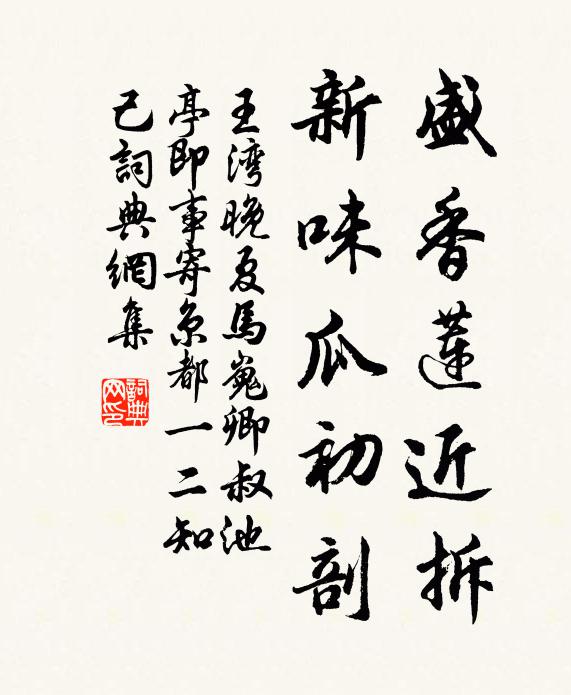 盛香蓮近拆
新味瓜初剖
王湾晚夏馬嵬卿叔池
亭即事寄京都一二知
己詞典網集
詞典网印